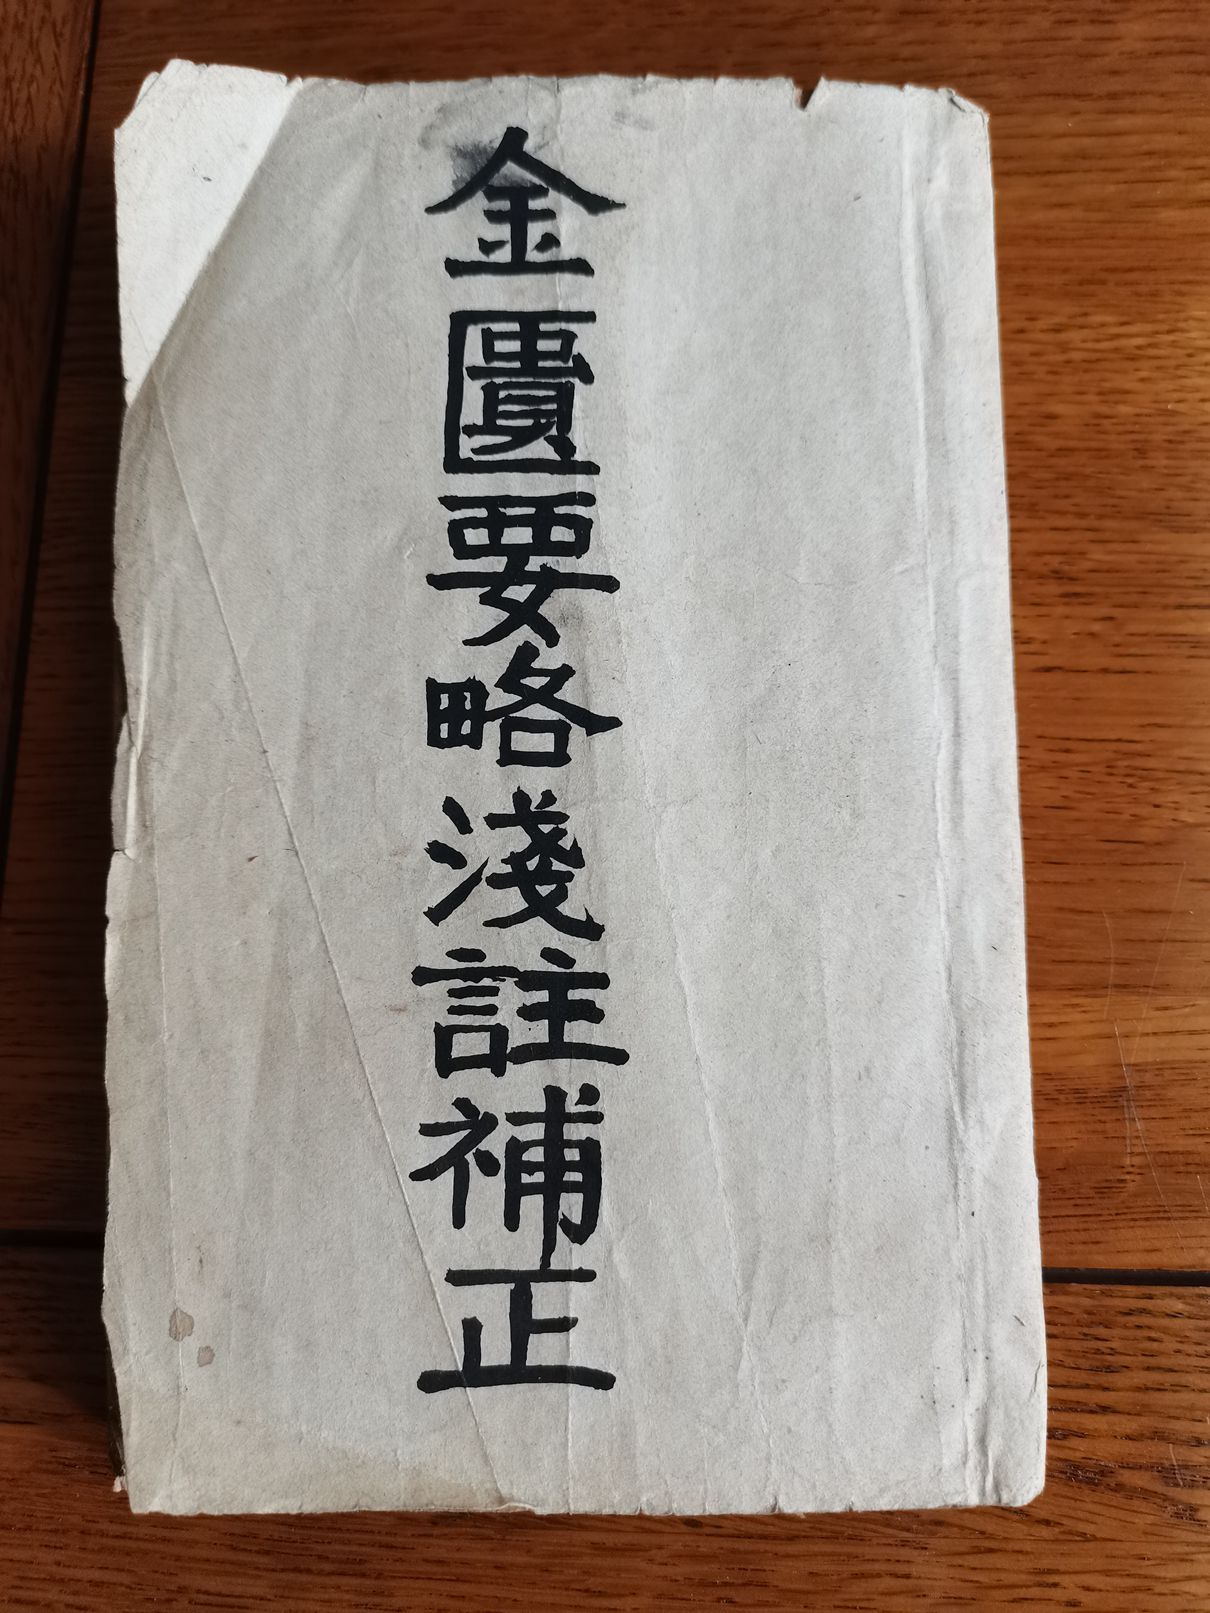 金匱要略淺註補正